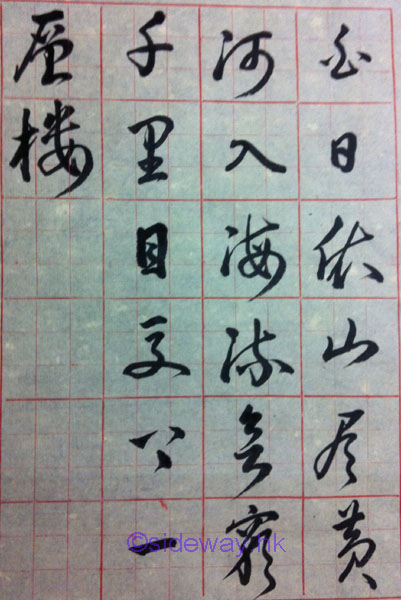 白日依山尽黄
河入海流欲窮
千里目更上一
层楼
©sideway.hk